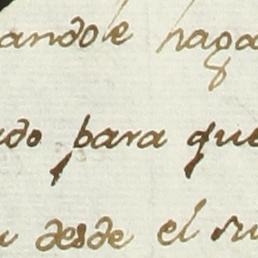 andole haga
ado para que
desde el su